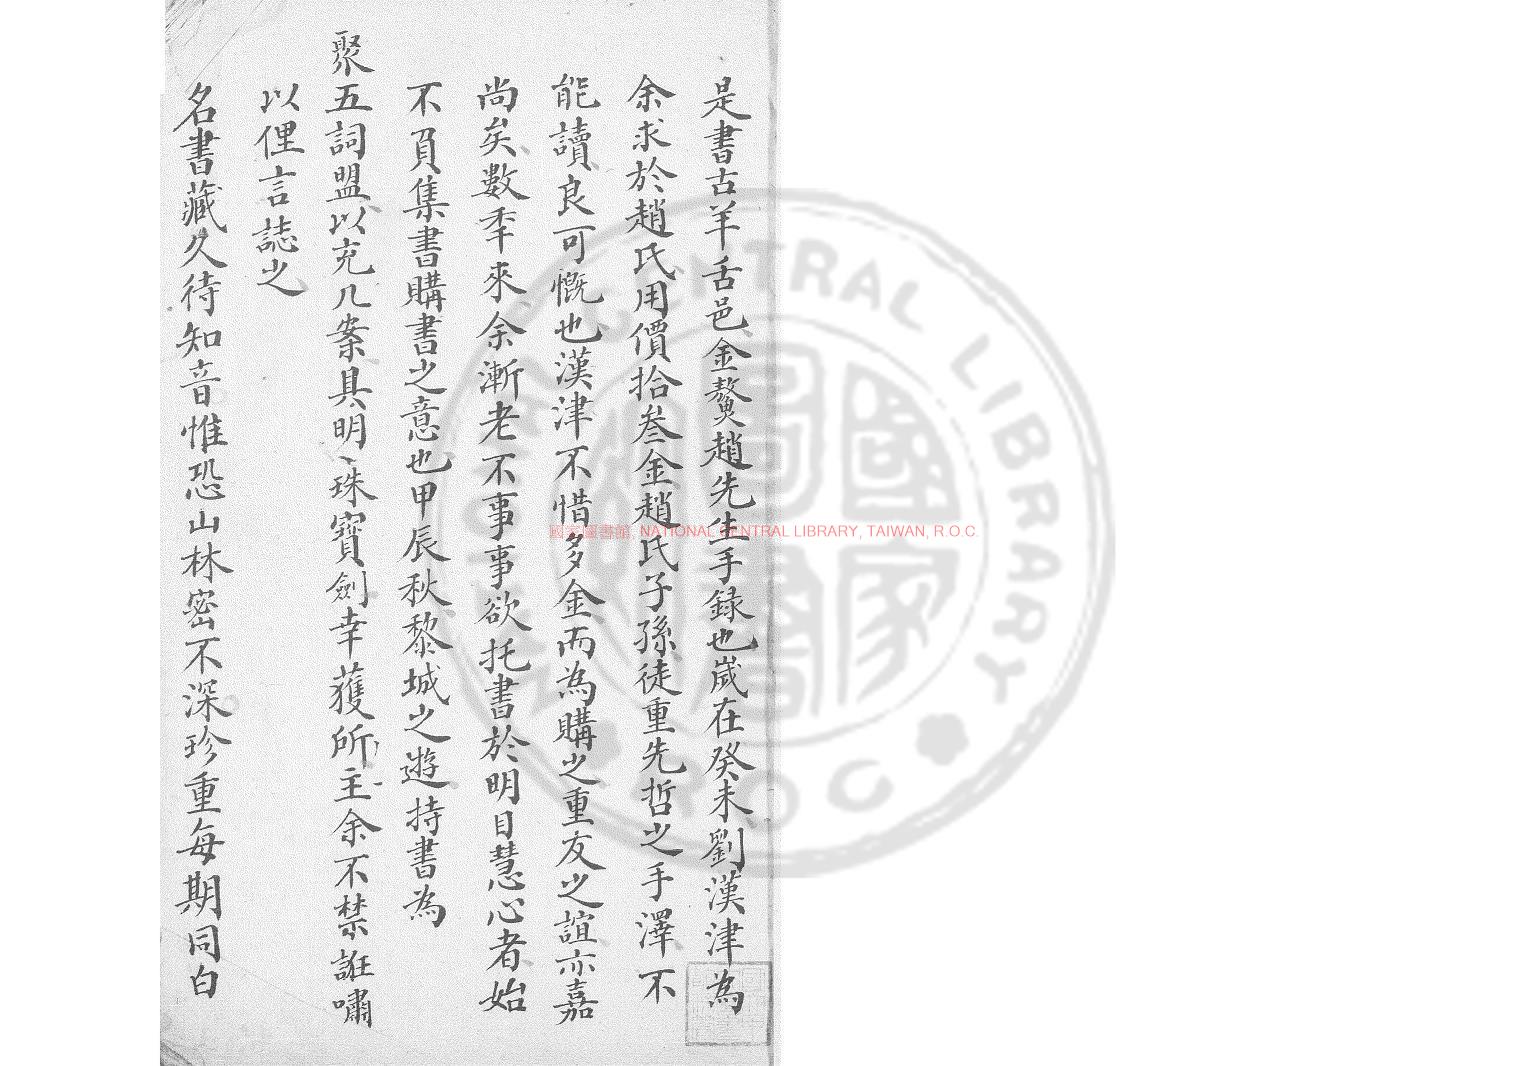 是書古羊舌邑金鰲趙先生手録也嵗在癸未劉漢津為
余求於趙氏用價拾叁金趙氏子孫徒重先哲之手澤不
能讀良可慨也漢津不惜多金而為購之重友之誼亦嘉
尚矣數年來余漸老不事事欲托書於明目慧心者始
不負集書購書之意也甲辰秋黎城之遊持書為
聚五詞盟以充几案具明珠寶劍幸獲所主余不禁誑嘯
以俚言誌之
名書藏久待知音惟恐山林密不深珍重每期同白
國家圖書館, NATIONAL CENTRAL LIBRARY, TAIWAN, R.O.C.
NATIONAL CENTRAL LIBRARY
ROC